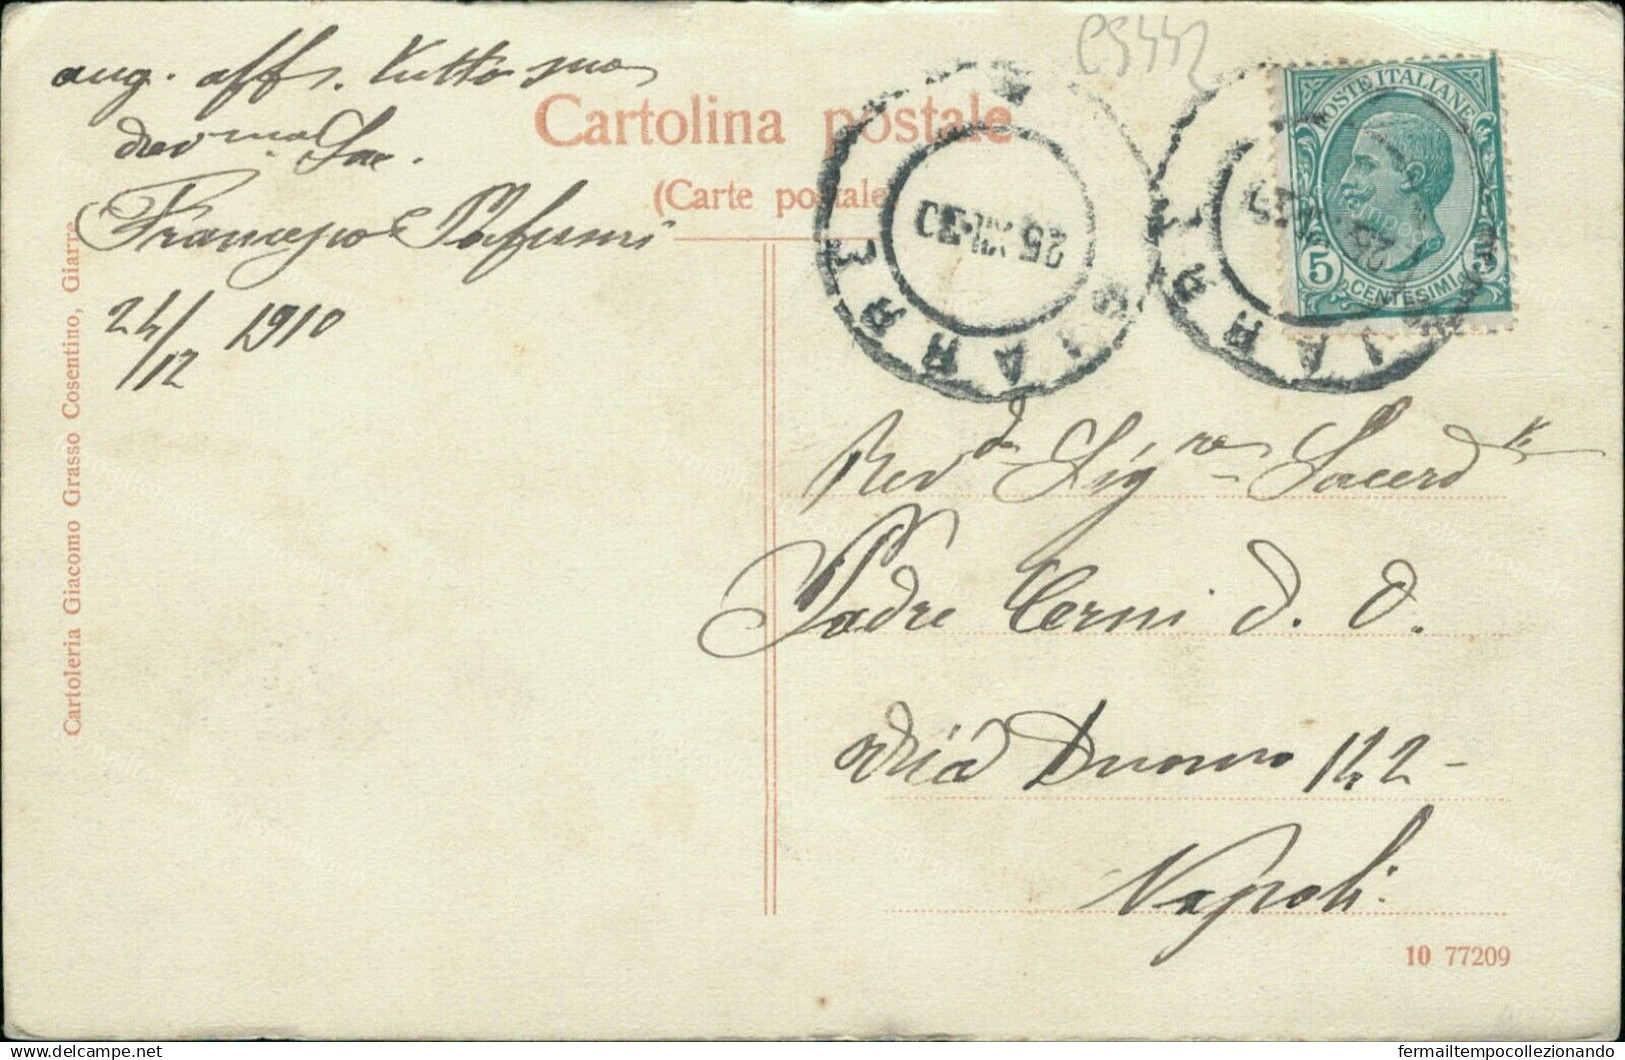 C5442
aug. aff. tutto suo
dev.mo Sac.
Francesco Pafumi
24/12 1910
Cartolina postale
(Carte postale)
GIARRE
25.XII.10
GIARRE
POSTE ITALIANE
5 CENTESIMI 5
Rev.do Sig.re Sacerd.te
Padre Cerni D. O.
Via Duomo 142 -
Napoli.
Cartoleria Giacomo Grasso Cosentino, Giarre
10 77209
delcampe.net
fermailtempocollezionando